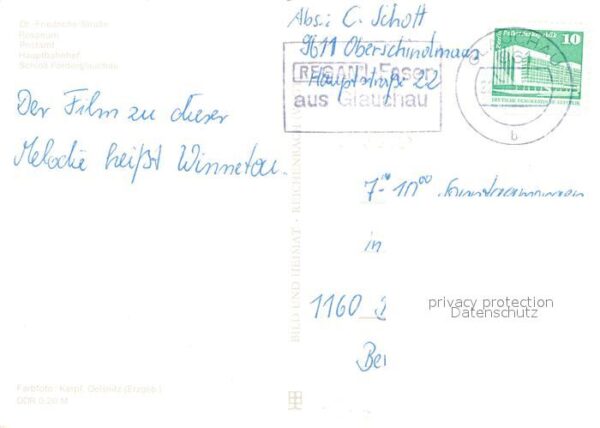 Dr.-Friedrichs-Straße
Rosarium
Postamt
Hauptbahnhof
Schloß Forderglauchau
Der Film zu dieser
Melodie heißt Winnetou.
Farbfoto: Kempf, Oelsnitz (Erzgeb.)
DDR 0,20 M
BILD UND HEIMAT · REICHENBACH
Abs.: C. Schott
9611 Oberschindmaas
Hauptstraße 22
REGAN Faser
aus Glauchau
GLAUCHAU
961
b
10
DEUTSCHE DEMOKRATISCHE REPUBLIK
7⁰⁰-10⁰⁰
in
1160
Ber
privacy protection
Datenschutz